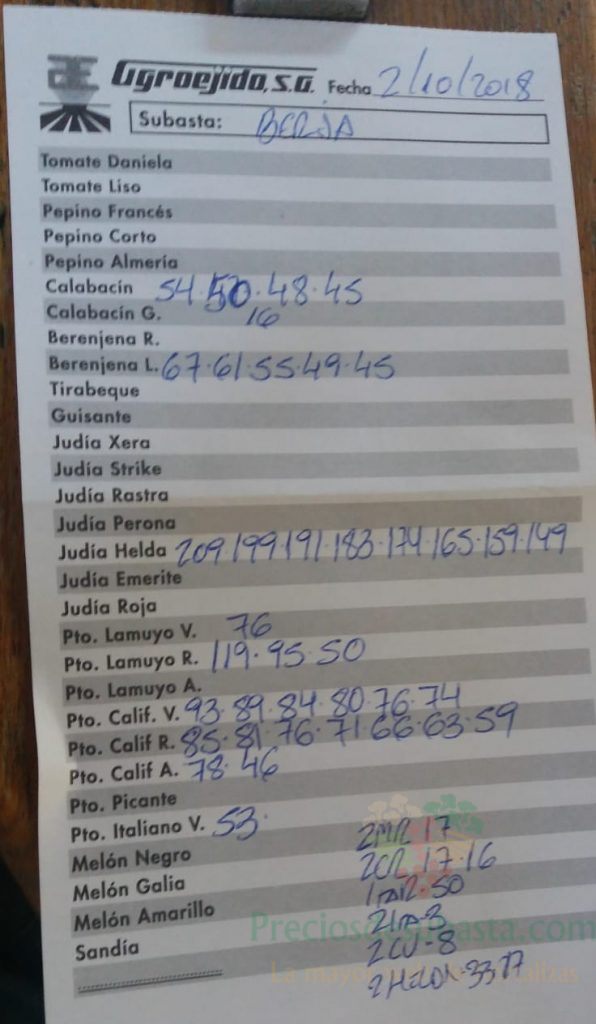 Agroejido, S.A. Fecha 2/10/2018
Subasta: BERJA
Tomate Daniela
Tomate Liso
Pepino Francés
Pepino Corto
Pepino Almería
Calabacín 54·50·48·45
Calabacín G. 16
Berenjena R.
Berenjena L. 67·61·55·49·45
Tirabeque
Guisante
Judía Xera
Judía Strike
Judía Rastra
Judía Perona
Judía Helda 209·199·191·183·174·165·159·149
Judía Emerite
Judía Roja
Pto. Lamuyo V. 76
Pto. Lamuyo R. 119·95·50
Pto. Lamuyo A.
Pto. Calif. V. 93·89·84·80·76·74
Pto. Calif R. 85·81·76·71·66·63·59
Pto. Calif A. 78·46
Pto. Picante
Pto. Italiano V. 53·
Melón Negro 2MR 17
Melón Galia 2CR·17·16
Melón Amarillo
Sandía
2CU-8